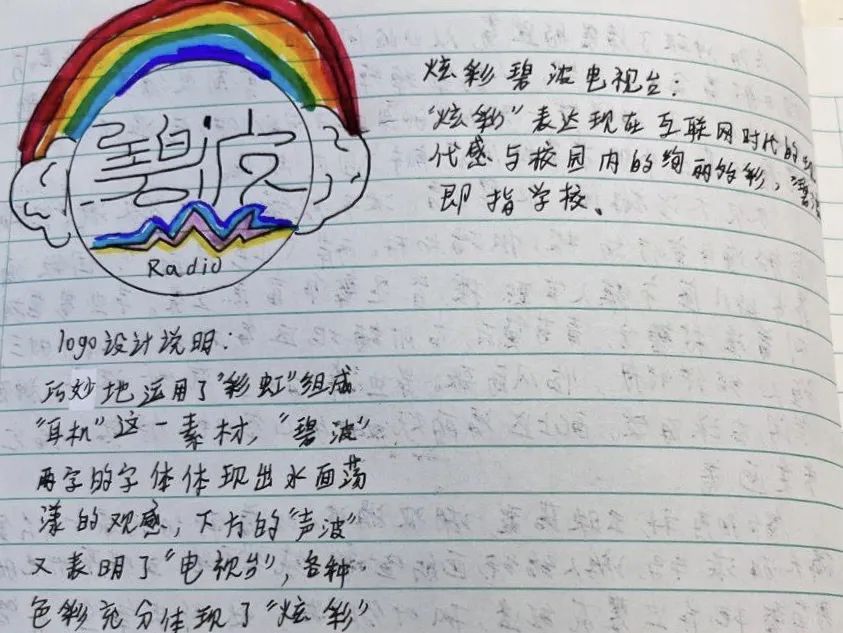 碧波
Radio
炫彩碧波电视台：
"炫彩"表达现在互联网时代的
代感与校园内的绚丽多彩，"碧波
即指学校、
logo设计说明：
巧妙地运用了"彩虹"组成
"耳机"这一素材，"碧波"
两字的字体体现出水面荡
漾的观感，下方的"声波"
又表明了"电视台"，各种
色彩充分体现了"炫彩"